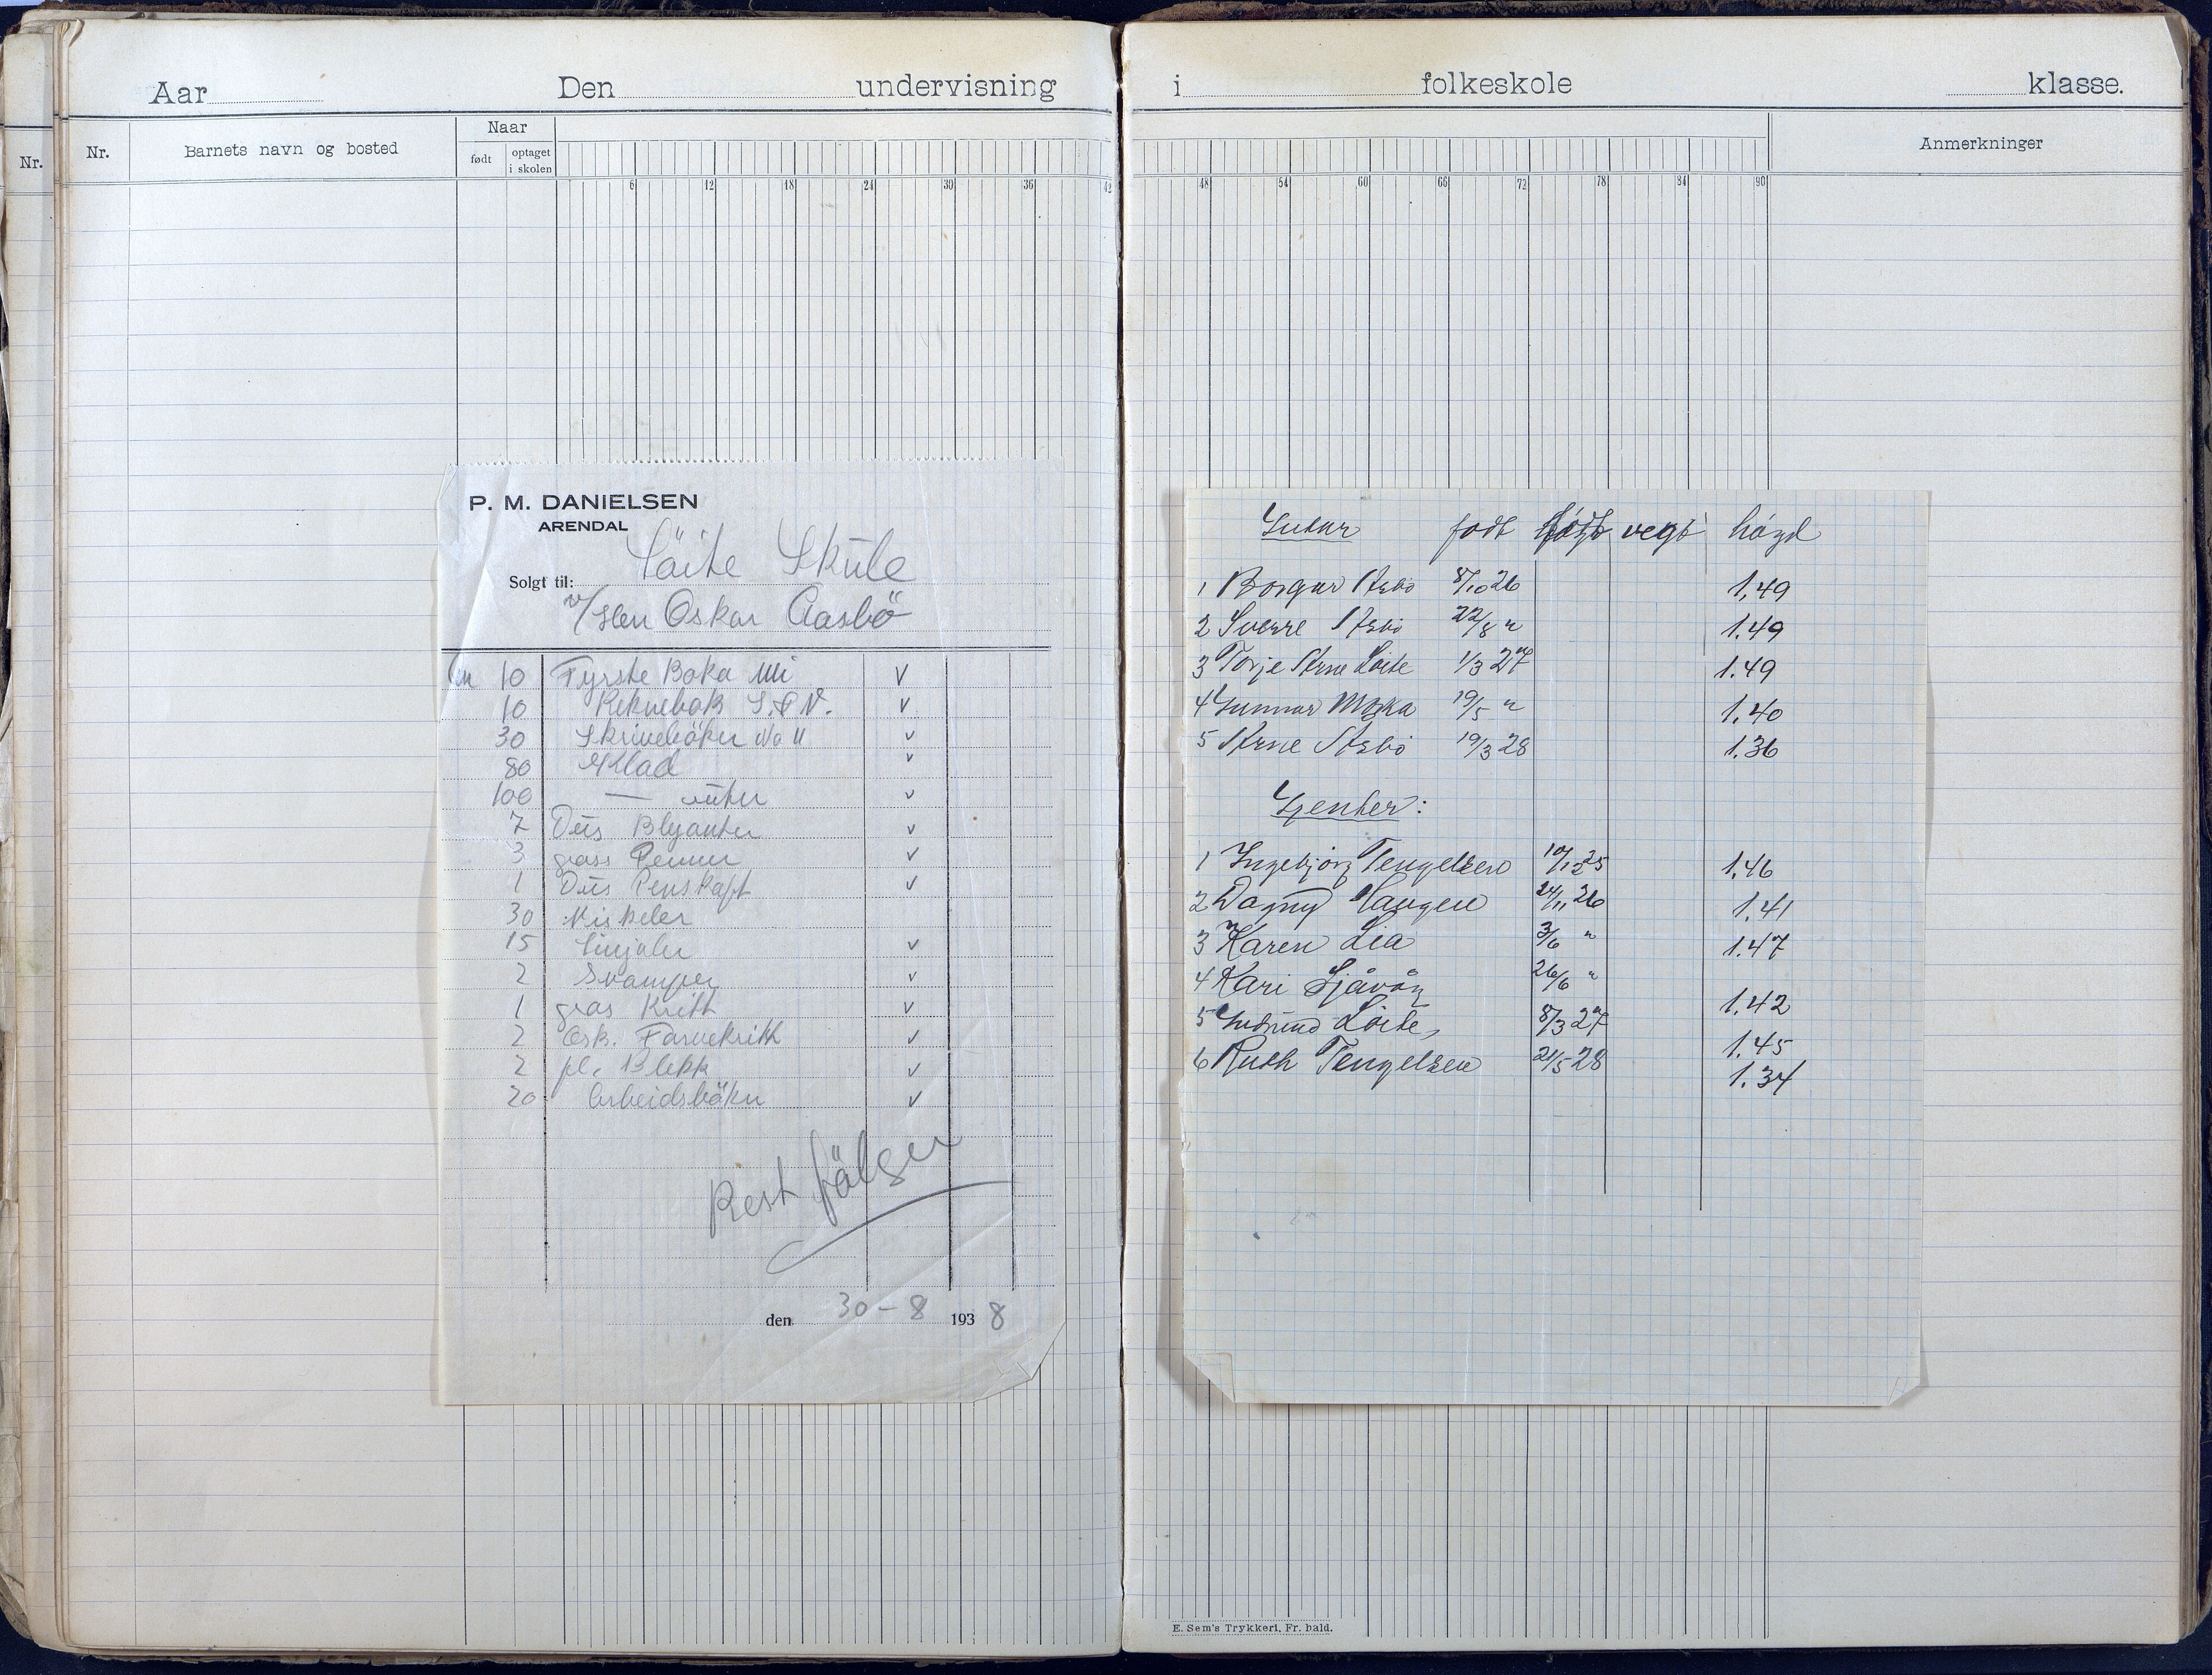 Aar Den undervisning i folkeskole klasse.
Nr.
Nr.
Barnets navn og bosted
Naar
født
optaget i skolen
6 12 18 24 30 36 42
48 54 60 66 72 78 84 90
Anmerkninger
P. M. DANIELSEN
ARENDAL
Solgt til: Löite Skule
v/ Herr Oskar Aasbö
10 Fyrste Boka Mi V
10 Reknebok V
30 Skriveböker No 11 V
80 Klad V
100 — ruter V
7 Dus Blyanter V
3 grass Penner V
1 Dus Penskaft V
30 Viskeler
15 Linjaler V
2 Svamper V
1 gras Kritt V
2 Esk. Farvekritt V
2 fl. Blekk V
20 Arbeidsböker V
Rest fölger
den 30-8 1938
Gutar født vegt høgd
1 Borgar Åsbø 8/10 26 1,49
2 Sverre Åsbø 22/8 " 1.49
3 Torje Arne Løite 1/3 27 1.49
4 Gunnar Moka 19/5 " 1,40
5 Arne Åsbø 19/3 28 1.36
Gjenter:
1 Ingebjørg Tengelsen 10/12 25 1,46
2 Dagny Haugen 24/11 26 1,41
3 Karen Lia 3/6 " 1.47
4 Kari Sjåvåg 26/6 " 1,42
5 Gudrund Løite, 8/3 27 1.45
6 Ruth Tengelsen 21/5 28 1.34
E. Sem's Trykkeri, Fr. hald.